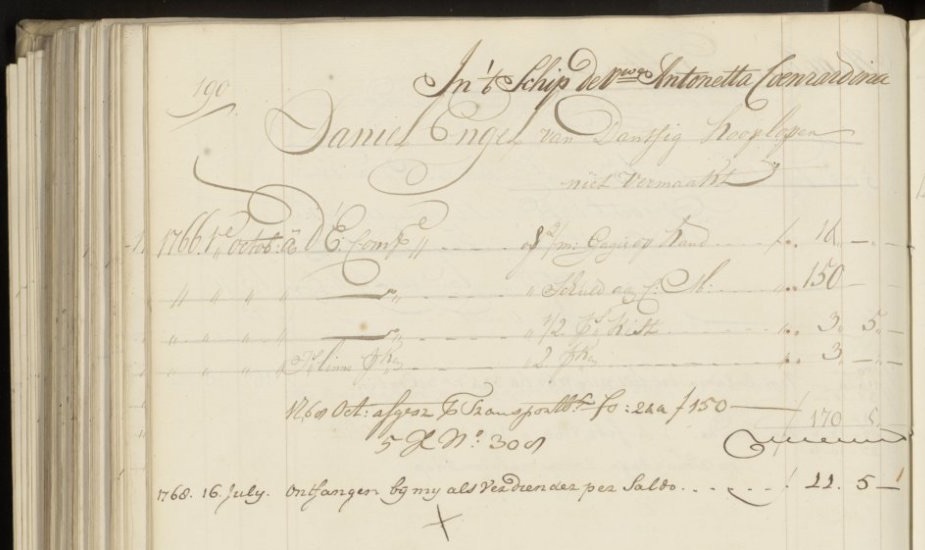 In 't Schip de vrouwe Antonetta Coenrardina
190
Daniel Engel van Dantsig hooploper
niet Vermaakt
1766. 1e octob: a d' E: Comp:e 2/m: Gagie op hand 14 –
" " " " " Schuld aan C: M: 150 –
" " " " " 1/2 Ps Kist 3 5 –
" " " " 2 3 –
1768 Oct: afgesz p Transport fo: 22a f 150
170 5
5 No. 308
1768. 16. July. ontfangen by my als Verdiender per Saldo 22. 5 –